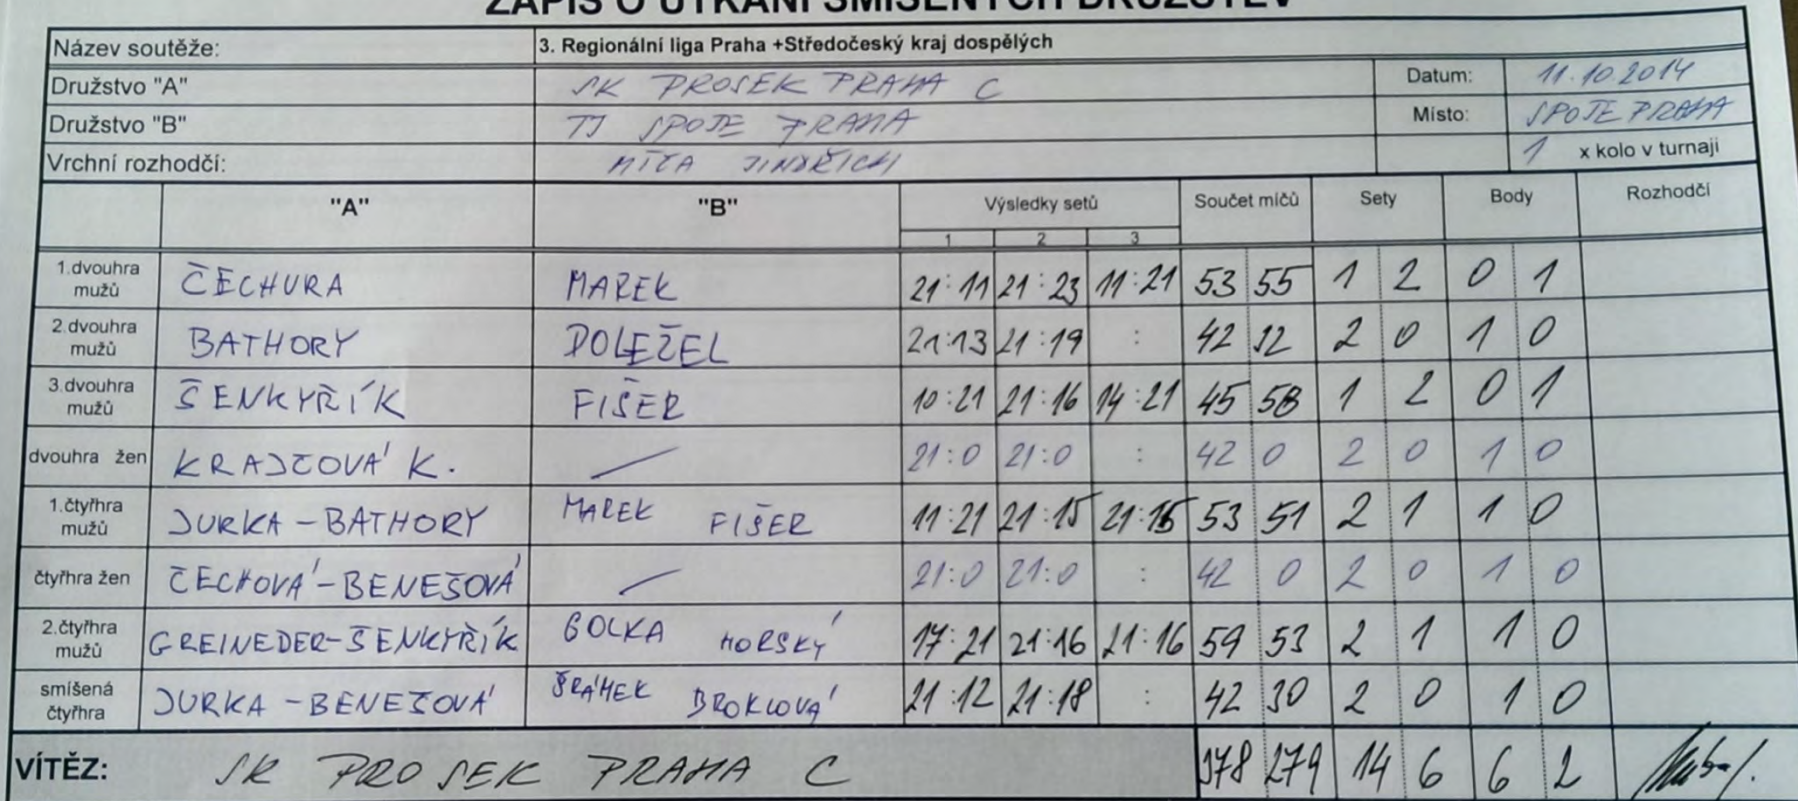 ZÁPIS O UTKÁNÍ SMÍŠENÝCH DRUŽSTEV
Název soutěže: 3. Regionální liga Praha +Středočeský kraj dospělých
Družstvo "A" SK PROSEK PRAHA C Datum: 11.10.2014
Družstvo "B" TJ SPOJE PRAHA Místo: SPOJE PRAHA
Vrchní rozhodčí: MÍČA JINDŘICH 1 x kolo v turnaji
"A" "B" Výsledky setů Součet míčů Sety Body Rozhodčí
1 2 3
1.dvouhra mužů ČECHURA MAREK 21:11 21:23 11:21 53 55 1 2 0 1
2.dvouhra mužů BATHORY DOLEŽEL 21:13 21:19 : 42 32 2 0 1 0
3.dvouhra mužů ŠENKYŘÍK FIŠER 10:21 21:16 14:21 45 58 1 2 0 1
dvouhra žen KRAJČOVÁ K. — 21:0 21:0 : 42 0 2 0 1 0
1.čtyřhra mužů JURKA - BATHORY MAREK FIŠER 11:21 21:15 21:15 53 51 2 1 1 0
čtyřhra žen ČECHOVÁ - BENEŠOVÁ — 21:0 21:0 : 42 0 2 0 1 0
2.čtyřhra mužů GREINEDER - ŠENKYŘÍK BOLKA HORSKÝ 17:21 21:16 21:16 59 53 2 1 1 0
smíšená čtyřhra JURKA - BENEŠOVÁ ŠRÁMEK BROKLOVÁ 21:12 21:18 : 42 30 2 0 1 0
VÍTĚZ: SK PROSEK PRAHA C 378 279 14 6 6 2